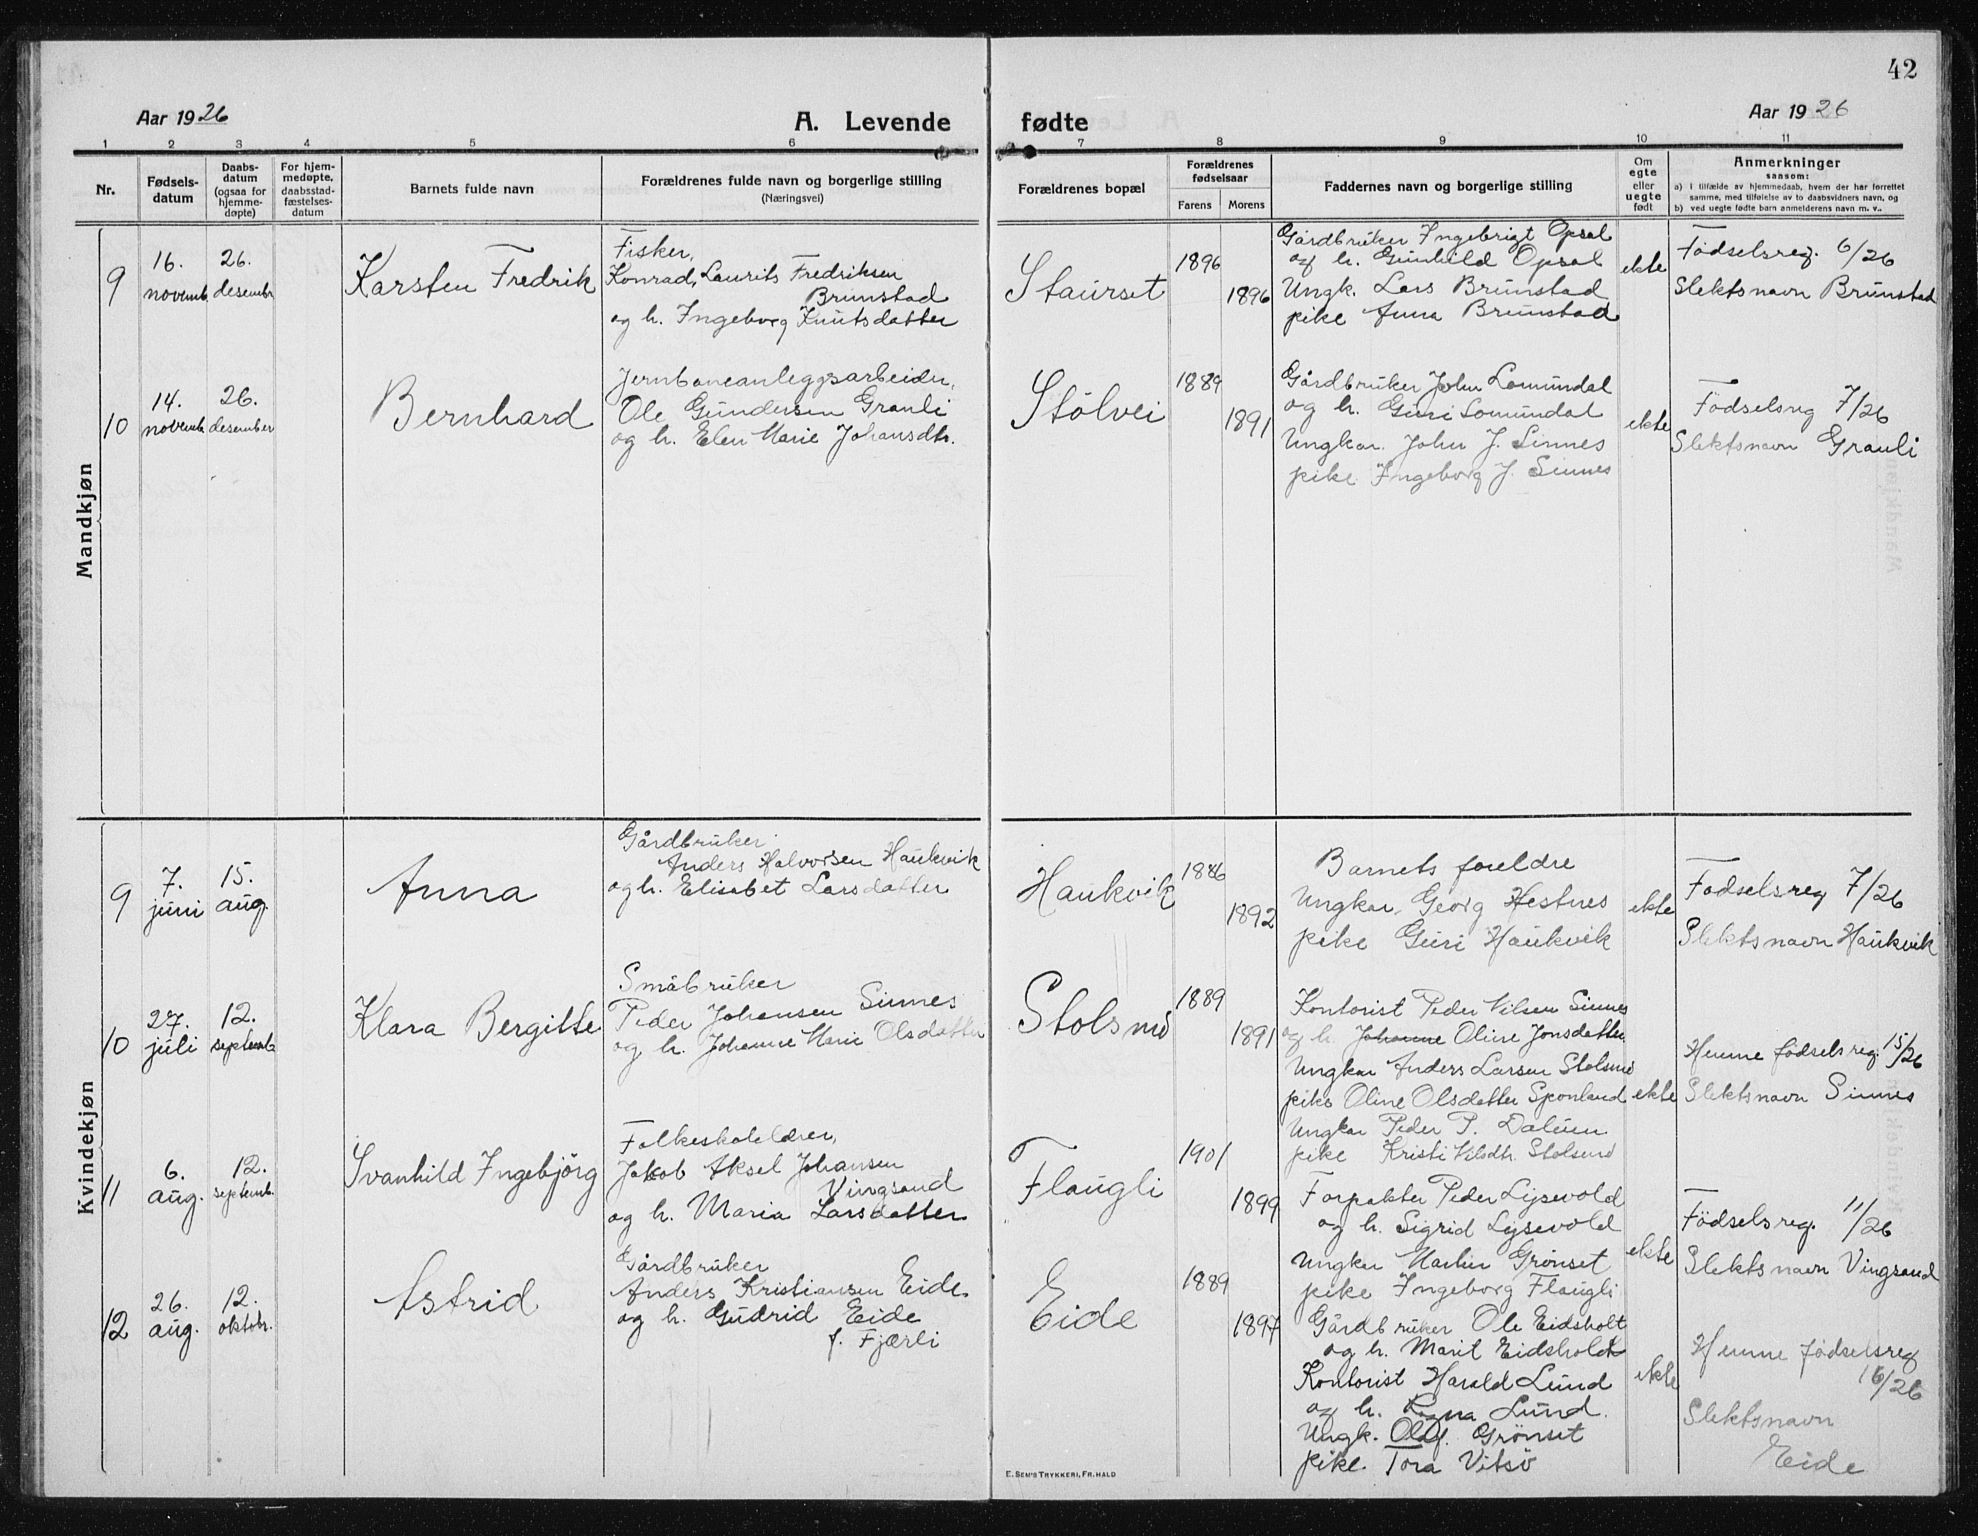 42
Aar 1926
A. Levende fødte
Aar 1926
1 2 3 4 5 6 7 8 9 10 11
Nr.
Fødsels-
datum
Daabs-
datum
(ogsaa for
hjemme-
døpte)
For hjem-
medøpte,
daabsstad-
fæstelses-
datum
Barnets fulde navn
Forældrenes fulde navn og borgerlige stilling
(Næringsvei)
Forældrenes bopæl
Forældrenes
fødselsaar
Farens Morens
Faddernes navn og borgerlige stilling
Om
egte
eller
uegte
født
Anmerkninger
sansom:
a) i tilfælde av hjemmedaab, hvem der har forrettet
samme, med tilføielse av to daabsvidners navn, og
b) ved uegte fødte barn anmelderens navn m. v..
Mandkjøn
9
16.
novemb.
26.
desembr
Karsten Fredrik
Fisker,
Konrad Laurits Fredriksen
Brunstad
og h. Ingeborg Knutsdatter
Staurset
1896
1896
Gårdbruker Ingebrigt Opsal
og h. Gunhild Opsal
Ungk. Lars Brunstad
pike Anna Brunstad
ekte
Fødselsreg. 6/26
Slektsnavn Brunstad
10
14.
novemb.
26.
desember
Bernhard
Jernbaneanleggsarbeider,
Ole Gundersen Grauli
og h. Elen Marie Johansdtr.
Stølvei
1889
1891
Gårdbruker John Lomundal
og h. Guri Lomundal
Ungkar. John J. Sinnes
pike Ingeborg J. Sinnes
ekte
Fødselsreg 7/26
Slektsnavn Grauli
Kvindekjøn
9
7.
juni
15.
aug.
Anna
Gårdbruker
Anders Halvorsen Haukvik
og h. Elisabet Larsdatter
Haukvik
1886
1892
Barnets foreldre
Ungkar, Georg Hestnes
pike Guri Haukvik
ekte
Fødselsreg 7/26
Slektsnavn Haukvik
10
27.
juli
12.
septemb.
Klara Bergitte
Småbruker
Peder Johansen Sinnes
og h. Johanne Marie Olsdatter
Stolsmo
1889
1891
Kontorist Peder Nilsen Sinnes
og h. Johanne Oline Jonsdatter
Ungkar Anders Larsen Stolsmo
pike Oline Olsdatter Sponland
Ungkar Peder P. Dalum
pike Kristi Stolsmo
ekte
Hemne fødselsreg. 15/26
Slektsnavn Sinnes
11
6.
aug.
12.
septemb.
Svanhild Ingebjørg
Folkeskolelærer,
Jakob Aksel Johansen
Vingsand
og h. Maria Larsdatter
Flaugli
1901
1899
Forpakter Peder Lysevold
og h. Sigrid Lysevold
Ungkar Martin Grønset
pike Ingeborg Flaugli
ekte
Fødselsreg. 11/26
Slektsnavn Vingsand
12
26.
aug.
12.
oktobr.
Astrid
Gårdbruker
Anders Kristiansen Eide
og h. Gudrid Eide
f. Fjærli
Eide
1889
1897
Gårdbruker Ole Eidsholt
og h. Marit Eidsholt
Kontorist Harald Lund
og h. Lund.
Ungk. Olaf. Grønset
pike Tora Vitsø
ekte
Hemne fødselsreg
16/26
Slektsnavn
Eide
E. SEM'S TRYKKERI, FR. HALD